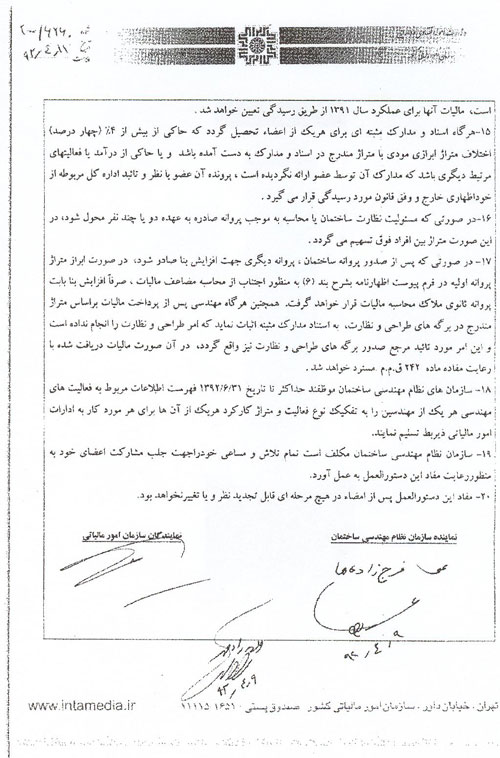 ۹۲،۴،۱۱
است، مالیات آنها برای عملکرد سال ۱۳۹۱ از طریق رسیدگی تعیین خواهد شد .
۱۵-هرگاه اسناد و مدارک مثبته ای برای هریک از اعضاء تحصیل گردد که حاکی از بیش از ۴٪ (چهار درصد)
اختلاف متراژ ابرازی مودی با متراژ مندرج در اسناد و مدارک به دست آمده باشد و یا حاکی از درآمد یا فعالیتهای
مرتبط دیگری باشد که مدارک آن توسط عضو ارائه نگردیده است ، پرونده آن عضو با نظر و تائید اداره کل مربوطه از
خوداظهاری خارج و وفق قانون مورد رسیدگی قرار می گیرد .
۱۶-در صورتی که مسئولیت نظارت ساختمان یا محاسبه به موجب پروانه صادره به عهده دو یا چند نفر محول شود، در
این صورت متراژ بین افراد فوق تسهیم می گردد .
۱۷- در صورتی که پس از صدور پروانه ساختمان ، پروانه دیگری جهت افزایش بنا صادر شود، در صورت ابراز متراژ
پروانه اولیه در فرم پیوست اظهارنامه بشرح بند (۶) به منظور اجتناب از محاسبه مضاعف مالیات ، صرفاً افزایش بنا بابت
پروانه ثانوی ملاک محاسبه مالیات قرار خواهد گرفت. همچنین هرگاه مهندسی پس از پرداخت مالیات براساس متراژ
مندرج در برگه های طراحی و نظارت، به استناد مدارک مثبته اثبات نماید که امر طراحی و نظارت را انجام نداده است
و این امر مورد تائید مرجع صدور برگه های طراحی و نظارت نیز واقع گردد، در آن صورت مالیات دریافت شده با
رعایت مفاده ماده ۲۴۲ ق.م.م مسترد خواهد شد .
۱۸- سازمان های نظام مهندسی ساختمان موظفند حداکثر تا تاریخ ۱۳۹۲/۶/۳۱ فهرست اطلاعات مربوط به فعالیت های
مهندسی هر یک از مهندسین را به تفکیک نوع فعالیت و متراژ کارکرد هریک از آن ها برای هر مورد کار به ادارات
امور مالیاتی ذیربط تسلیم نمایند.
۱۹- سازمان نظام مهندسی ساختمان مکلف است تمام تلاش و مساعی خودراجهت جلب مشارکت اعضای خود به
منظوررعایت مفاد این دستورالعمل به عمل آورد.
۲۰- مفاد این دستورالعمل پس از امضاء در هیچ مرحله ای قابل تجدید نظر و یا تغییرنخواهد بود.
نماینده سازمان نظام مهندسی ساختمان
نمایندگان سازمان امور مالیاتی
فرج زاده ها
۹۲،۴،۹
۹۲،۴،۹
تهران . خیابان داور . سازمان امور مالیاتی کشور صندوق پستی : ۱۶۵۱ ۱۱۱۱۵
www.intamedia.ir